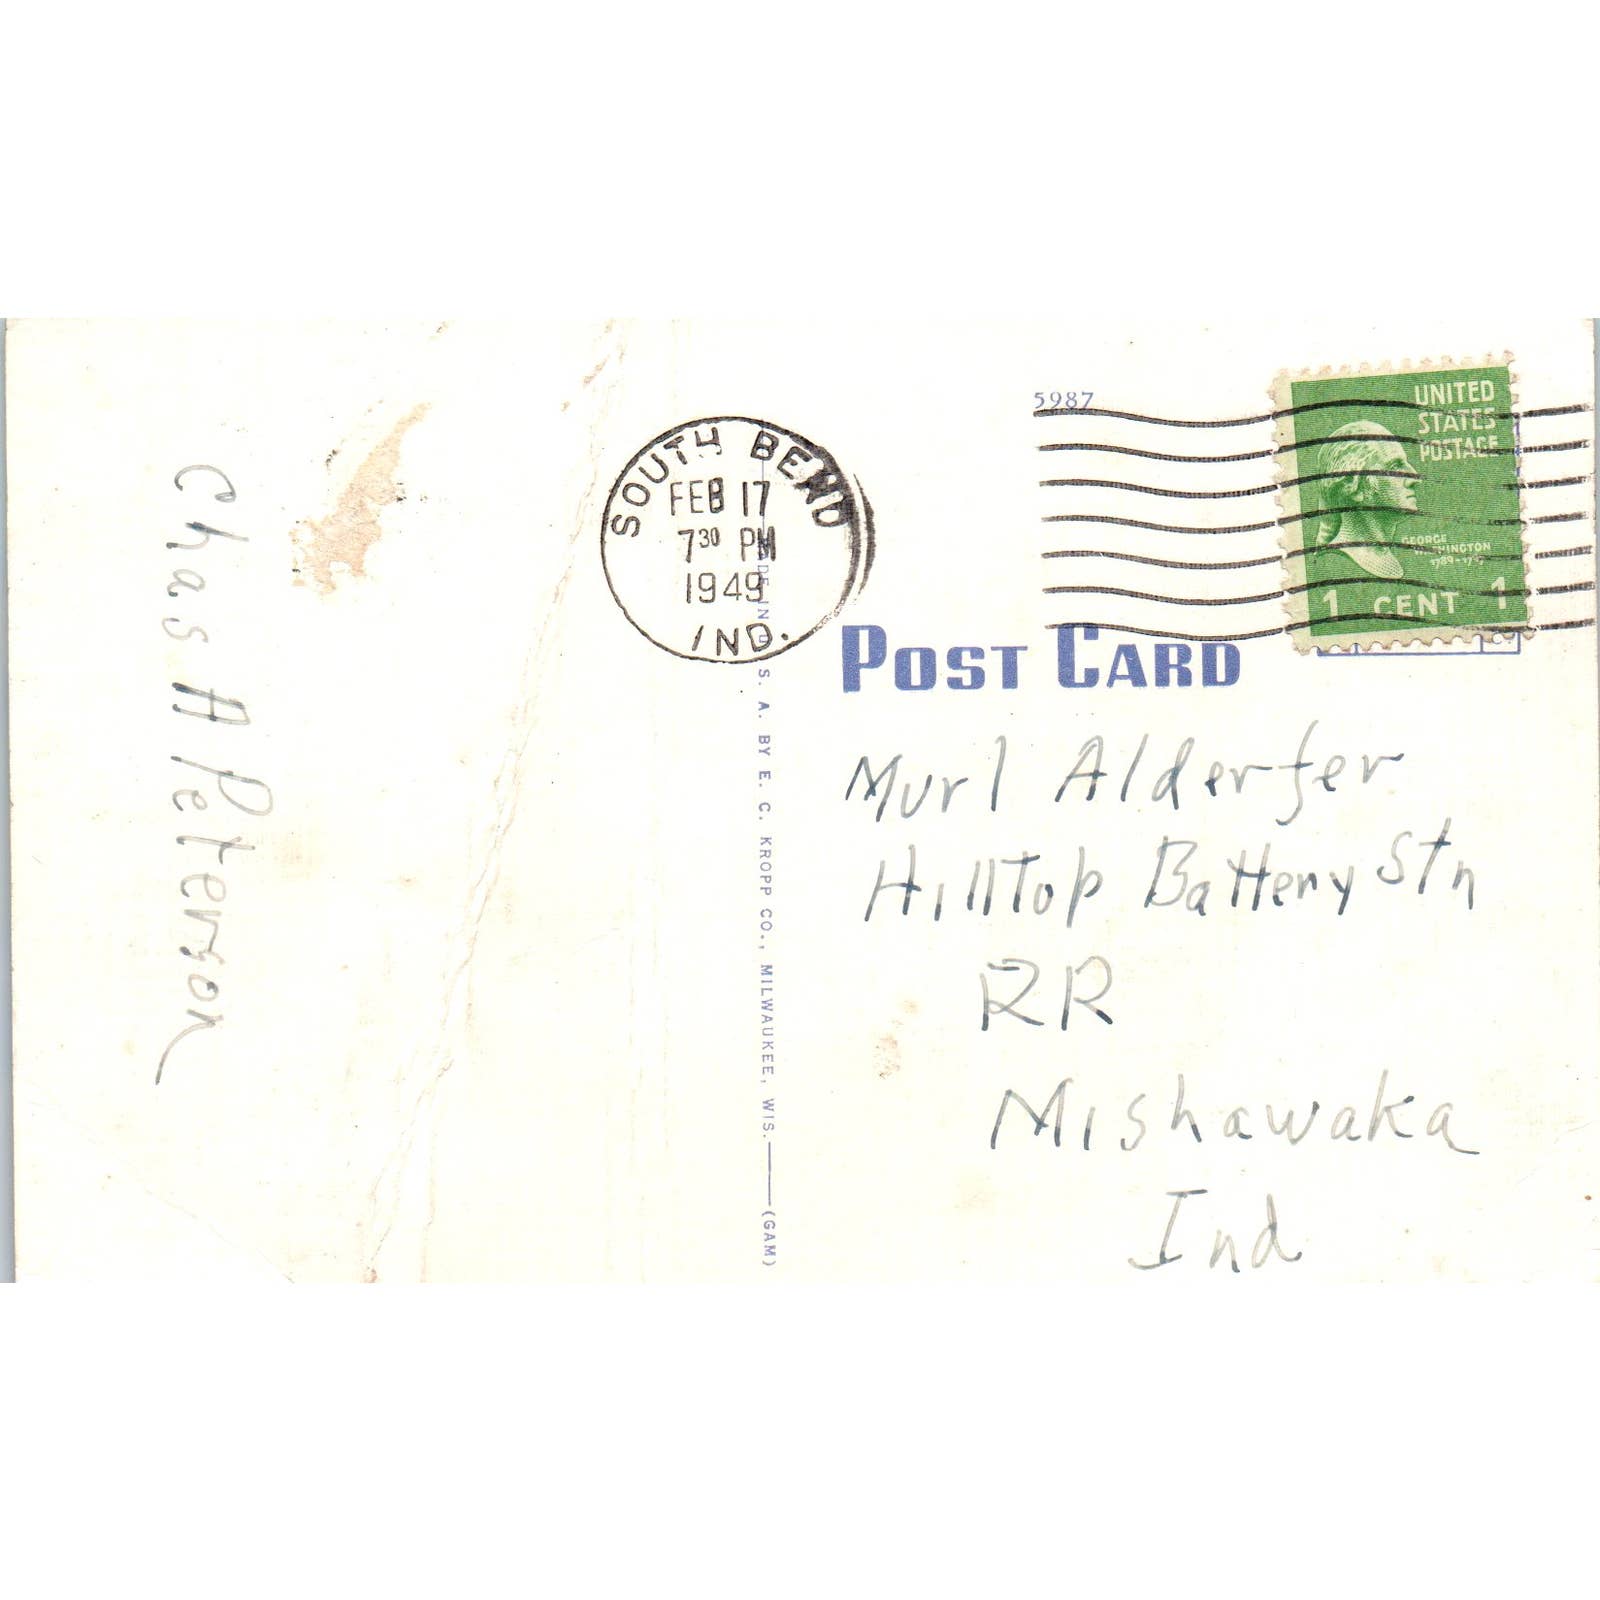 Chas A Peterson
SOUTH BEND
FEB 17
7 30 PM
1949
IND.
5987
UNITED
STATES
POSTAGE
GEORGE
WASHINGTON
1 CENT 1
POST CARD
S. A. BY E. C. KROPP CO., MILWAUKEE, WIS.—(GAM)
Murl Alderfer
Hilltop Battery Stn
RR
Mishawaka
Ind